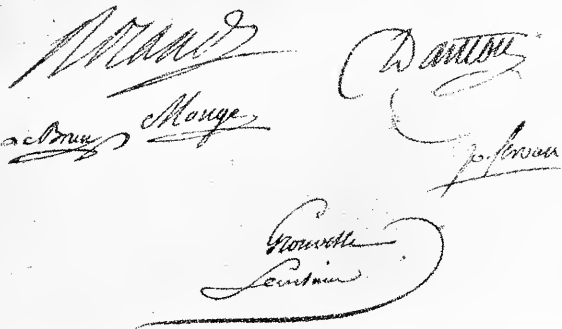 Roland Danton
LeBrun Monge
jo. Servan
Grouvelle
Secrétaire